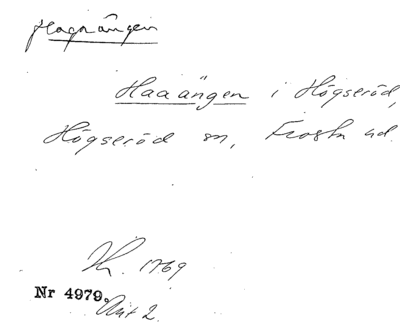 Hagaängen
Haaängen i Högseröd,
Högseröd sn, Frosta hd.
Sk. 1769
Nr 4979.
Akt 2.